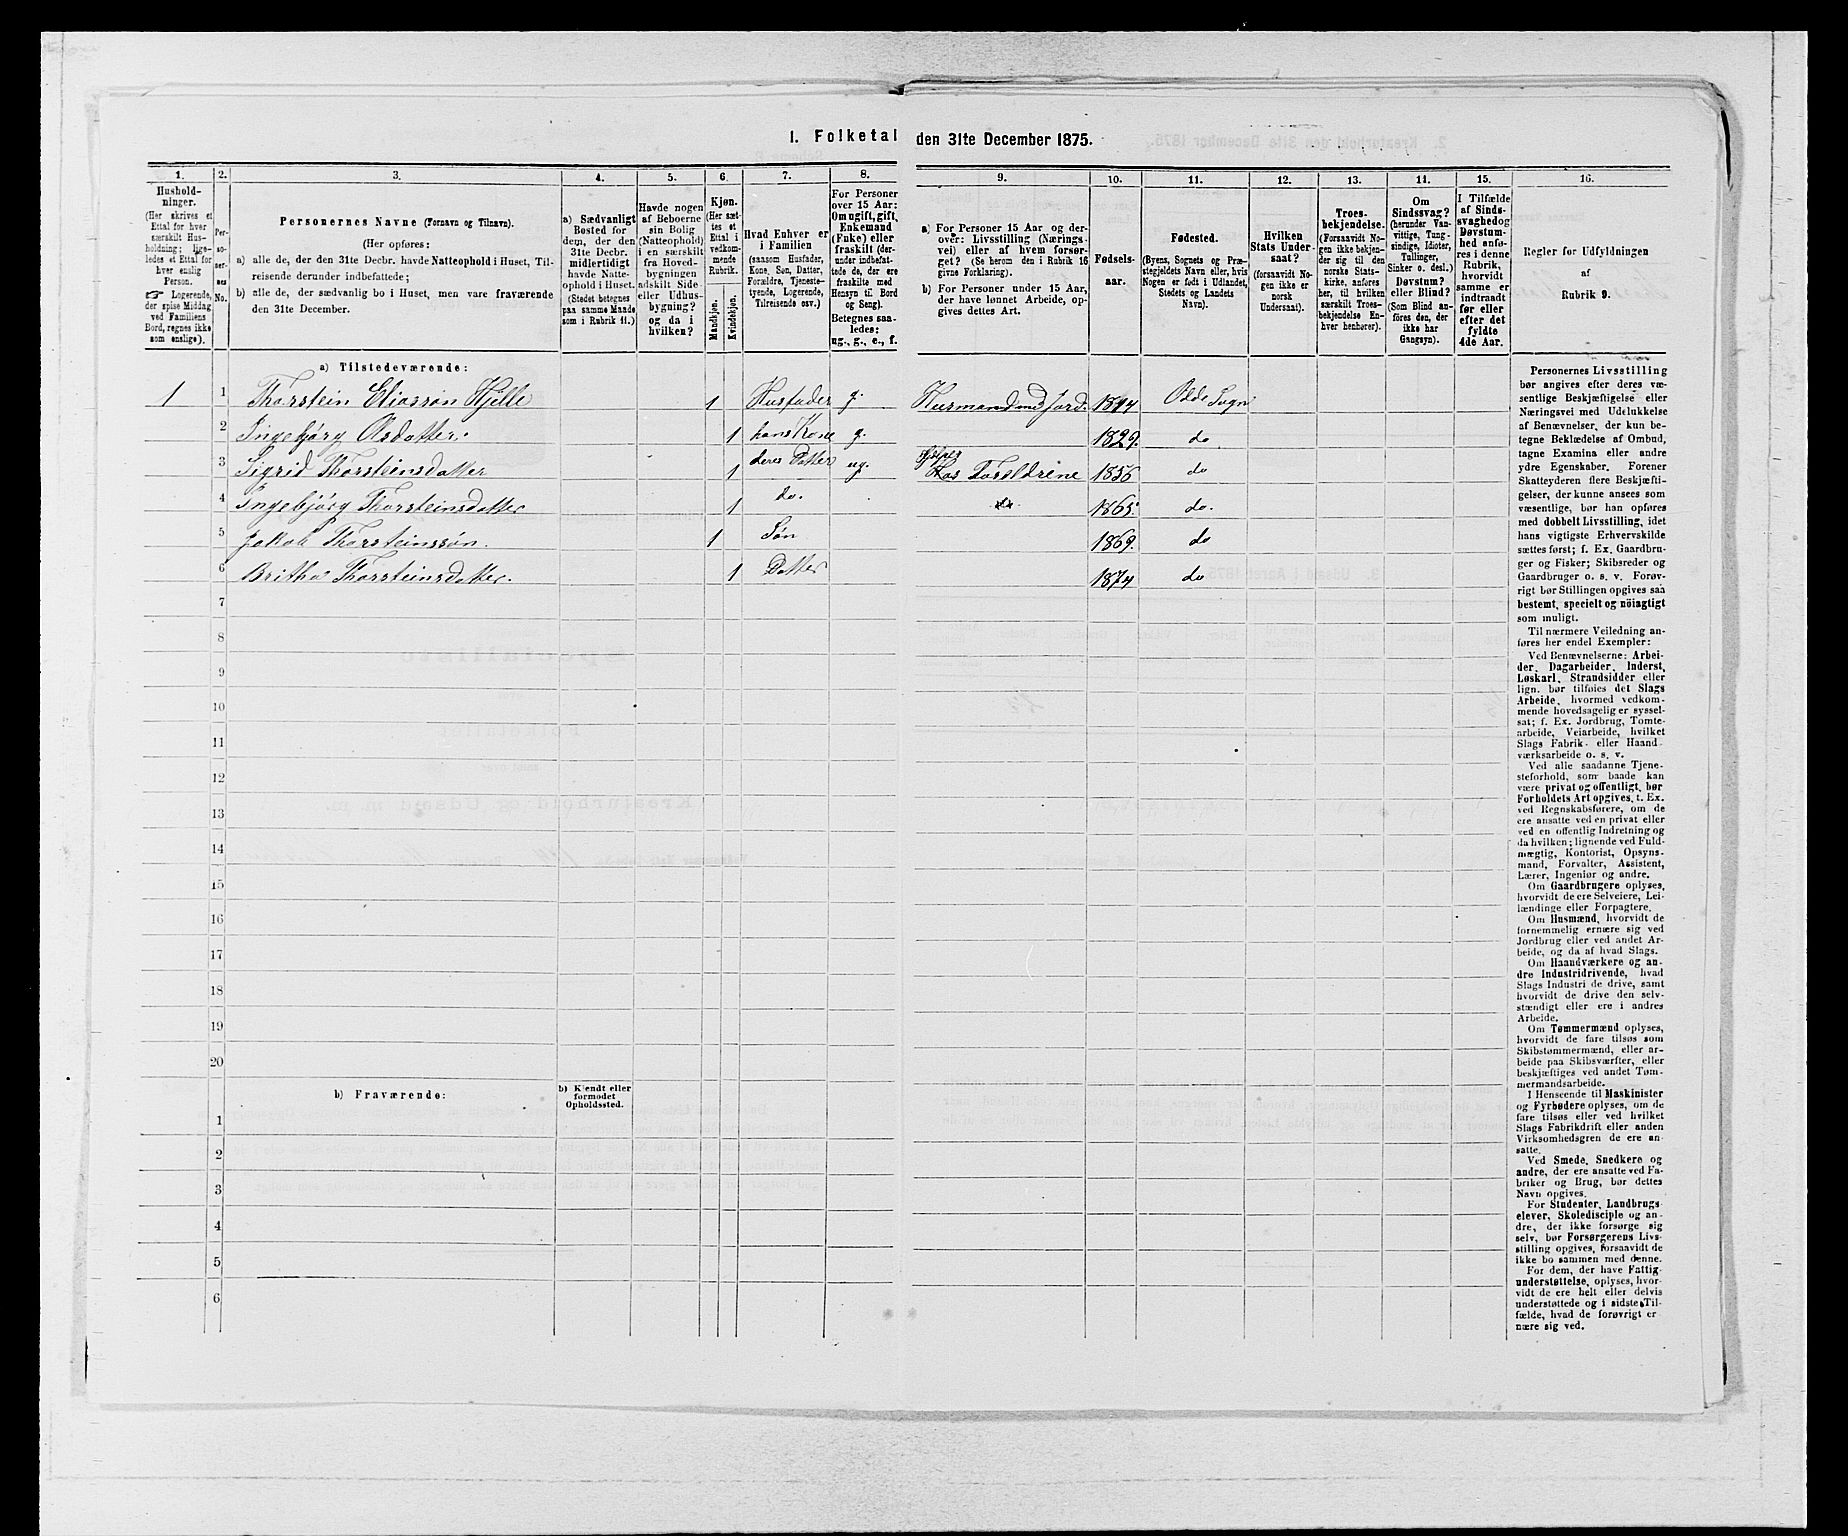 I. Folketal den 31te December 1875.
1. 2. 3. 4. 5. 6. 7. 8. 9. 10. 11. 12. 13. 14. 15. 16.
Hushold-
ninger.
(Her skrives et
Ettal for hver
særskilt Hus-
holdning; lige-
ledes et Ettal for
hver enslig
Person.
☞ Logerende,
der spise Middag
ved Familiens
Bord, regnes ikke
som enslige).
Per-
so-
ner-
nes
No.
Personernes Navne (Fornavn og Tilnavn).
(Her opføres:
a) alle de, der den 31te Decbr. havde Natteophold i Huset, Til-
reisende derunder indbefattede;
b) alle de, der sædvanlig bo i Huset, men vare fraværende
den 31te December.
a) Sædvanligt
Bosted for
dem, der den
31te Decbr.
midlertidigt
havde Natte-
ophold i Huset.
(Stedet betegnes
paa samme Maade
som i Rubrik 11.)
Havde nogen
af Beboerne
sin Bolig
(Natteophold)
i en særskilt
fra Hoved-
bygningen
adskilt Side-
eller Udhus-
bygning?
og da i
hvilken?
Kjøn.
(Her sæt-
tes et
Ettal i
vedkom-
mende
Rubrik.
Mandkjøn.
Kvindekjøn.
Hvad Enhver er
i Familien
(saasom Husfader,
Kone, Søn, Datter,
Forældre, Tjeneste-
tyende, Logerende,
Tilreisende osv.)
For Personer
over 15 Aar:
Om ugift, gift,
Enkemand
(Enke) eller
fraskilt (der-
under indbefat-
tede de, der ere
fraskilte med
Hensyn til Bord
og Seng).
Betegnes saa-
ledes:
ug., g., e., f.
a) For Personer 15 Aar og der-
over: Livsstilling (Nærings-
vei) eller af hvem forsør-
get? (Se herom den i Rubrik 16
givne Forklaring).
b) For Personer under 15 Aar,
der have lønnet Arbeide, op-
gives dettes Art.
Fødsels-
aar.
Fødested.
(Byens, Sognets og Præ-
stegjeldets Navn eller, hvis
Nogen er født i Udlandet,
Stedets og Landets
Navn).
Hvilken
Stats Under-
saat?
(forsaavidt No-
gen ikke er
norsk
Undersaat).
Troes-
bekjendelse.
(Forsaavidt No-
gen ikke bekjen-
der sig til den
norske Stats-
kirke, anføres
her, til hvilken
særskilt Troes-
bekjendelse En-
hver henhører).
Om
Sindssvag?
(herunder Van-
vittige, Tung-
sindige, Idioter,
Tullinger,
Sinker o. desl.)
Døvstum?
eller Blind?
(Som Blind an-
føres den, der
ikke har
Gangsyn).
I Tilfælde
af Sinds-
svaghed og
Døvstum-
hed anfø-
res i denne
Rubrik,
hvorvidt
samme er
indtraadt
før eller
efter det
fyldte
4de Aar.
Regler for Udfyldningen
af
Rubrik 9.
a) Tilstedeværende:
1 1 Thorstein Eliassøn Hjelle 1 Husfader g. Husmand med Jord. 1814 Odde Sogn
2 Ingebjørg Olsdatter. 1 hans Kone g. 1829. do
3 Sigrid Thorsteinsdatter 1 deres Datter ug. hjelper Hos Forældrene 1856 do
4 Ingebjørg Thorsteinsdatter 1 do. 1865. do.
5 Jakob Thorsteinssøn. 1 Søn 1869. do
6 Britha Thorsteinsdatter. 1 Datter 1874 do
7
8
9
10
11
12
13
14
15
16
17
18
19
20
b) Fraværende:
b) Kjendt eller
formodet
Opholdssted.
1
2
3
4
5
6
Personernes Livsstilling
bør angives efter deres væ-
sentlige Beskjæftigelse eller
Næringsvei med Udelukkelse
af Benævnelser, der kun be-
tegne Beklædelse af Ombud,
tagne Examina eller andre
ydre Egenskaber. Forener
Skatteyderen flere Beskjæfti-
gelser, der kunne ansees som
væsentlige, bør han opføres
med dobbelt Livsstilling, idet
hans vigtigste Erhvervskilde
sættes først; f. Ex. Gaardbru-
ger og Fisker; Skibsreder og
Gaardbruger o. s. v. Forøv-
rigt bør Stillingen opgives saa
bestemt, specielt og nöiagtigt
som muligt.
Til nærmere Veiledning an-
føres her endel Exempler:
Ved Benævnelserne: Arbei-
der, Dagarbeider, Inderst,
Løskarl, Strandsidder eller
lign. bør tilføies det Slags
Arbeide, hvormed vedkom-
mende hovedsagelig er syssel-
sat; f. Ex. Jordbrug, Tomte-
arbeide, Veiarbeide, hvilket
Slags Fabrik- eller Haand-
værksarbeide o. s. v.
Ved alle saadanne Tjene-
steforhold, som baade kan
være privat og offentligt, bør
Forholdets Art opgives, t. Ex.
ved Regnskabsførere, om de
ere ansatte ved en privat eller
ved en offentlig Indretning og
da hvilken; lignende ved Fuld-
mægtig, Kontorist, Opsyns-
mand, Forvalter, Assistent,
Lærer, Ingeniør og andre.
Om Gaardbrugere oplyses,
hvorvidt de ere Selveiere, Lei-
lændinge eller Forpagtere.
Om Husmænd, hvorvidt de
fornemmelig ernære sig ved
Jordbrug eller ved andet Ar-
beide, og da af hvad Slags.
Om Haandværkere og an-
dre Industridrivende, hvad
Slags Industri de drive, samt
hvorvidt de drive den selv-
stændigt eller ere i andres
Arbeide.
Om Tømmermænd oplyses,
hvorvidt de fare tilsøs som
Skibstømmermænd, eller ar-
beide paa Skibsværfter, eller
beskjæftiges ved andet Tøm-
mermandsarbeide.
I Henseende til Maskinister
og Fyrbødere oplyses, om de
fare tilsøs eller ved hvilket
Slags Fabrikdrift eller anden
Virksomhedsgren de ere an-
satte.
Ved Smede, Snedkere og
andre, der ere ansatte ved Fa-
briker og Brug, bør dettes
Navn opgives.
For Studenter, Landbrugs-
elever, Skoledisciple og an-
dre, der ikke forsørge sig
selv, bør Forsørgerens Livs-
stilling opgives, forsaavidt de
ikke bo sammen med denne.
For dem, der have Fattig-
understøttelse, oplyses, hvor-
vidt de ere helt eller delvis
understøttede og i sidste Til-
fælde, hvad de forøvrigt er-
nære sig ved.